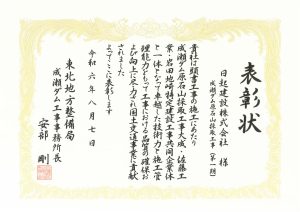 表彰状
日起建設株式会社 様
成瀬ダム原石山採取工事(第一期)
貴社は頭書工事の施工にあたり
成瀬ダム原石山採取工事大成・佐藤工
業・岩田地崎特定建設工事共同企業体
と一体となって卓越した技術力と施工管
理能力をもって工事における品質の確保お
よび向上に尽力され国土交通事業に貢献
されました
よってここに表彰します
令和六年八月七日
東北地方整備局
成瀬ダム工事事務所長
安部 剛